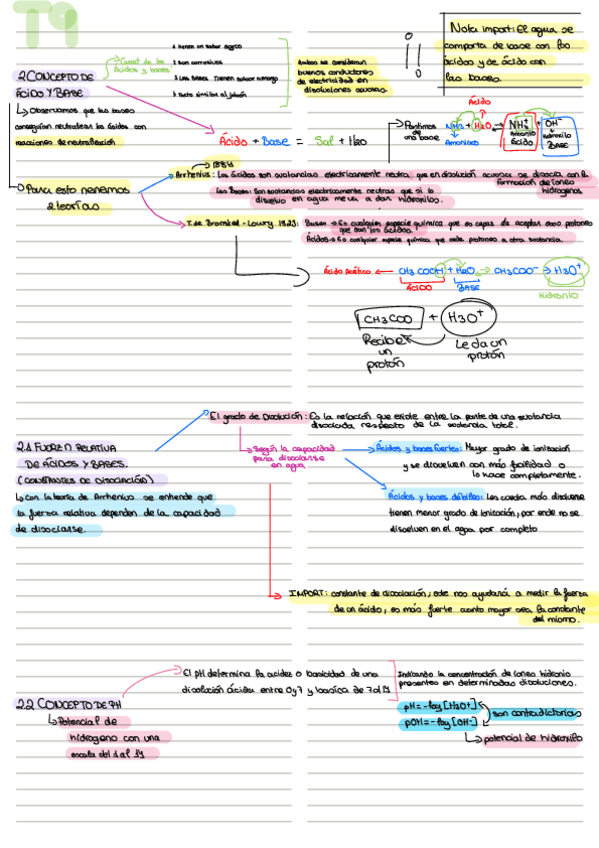 T9
Nota import: El agua se
comporta de base con los
ácidos y de ácido con
las bases.
2. CONCEPTO DE
ÁCIDO Y BASE
Caract de los
Ácidos y bases
1. tienen un sabor agrio
2. son corrosivos
3. Las bases tienen sabor amargo
4. tacto similar al jabón
Ambos se consideran
buenos conductores
de electricidad en
disoluciones acuosas.
↳ Observamos que las bases
conseguían neutralizar los ácidos con
reacciones de neutralización
Ácido + Base = Sal + H2O
Partimos de
una base
Ácido
NH3 + H2O → NH4+ + OH-
Amoniaco
Amonio
Ácido
Hidroxilo
BASE
Para esto tenemos
2 teorías
1884
Arrhenius: Los ácidos son sustancias electricamente neutra, que en disolución acuosa se disocia con la
formación de iones
hidrogenos
Las Bases: Son sustancias electricamente neutras que si lo
disuelvo en agua me va a dar hidroxilos.
T. de Bronsted-Lowry 1923: Bases → Es cualquier especie química que es capaz de aceptar esos protones
que dan los ácidos.
Ácidos → Es cualquier especie química que cede protones a otra sustancia.
Ácido Acético ← CH3 COOH + H2O → CH3COO- → H3O+
ÁCIDO
BASE
Hidronio
CH3COO + H3O+
Recibe
un
protón
Le da un
protón
2.1 FUERZA RELATIVA
DE ÁCIDOS Y BASES.
(CONSTANTES DE DISOCIACIÓN)
↳ con la teoría de Arrhenius se entiende que
la fuerza relativa dependen de la capacidad
de disociarse.
El grado de Disolución: Es la relación que existe entre la parte de una sustancia
disociada respecto de la sustancia total.
↳ Según la capacidad
para disociarse
en agua
Ácidos y bases fuertes: Mayor grado de ionización
y se disuelven con más facilidad o
lo hace completamente.
Ácidos y bases débiles: Les cuesta más disolverse
tienen menor grado de ionización, por ende no se
disuelven en el agua por completo
IMPORT: constante de disociación, este nos ayudará a medir la fuerza
de un ácido, es más fuerte cuanto mayor sea la constante
del mismo.
2.2 CONCEPTO DE PH
↳ Potencial de
hidrogeno con una
escala del 1 al 14
El pH determina la acidez o basicidad de una
disolución ácida entre 0 y 7 y basica de 7 al 14
Indicando la concentración de iones hidronio
presentes en determinadas disoluciones.
pH = -log [H3O+]
pOH = -log [OH-]
son contradictorias
↳ potencial de hidroxilo